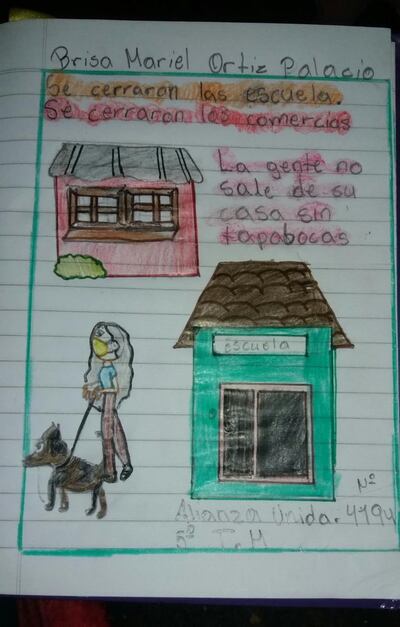 Brisa Mariel Ortiz Palacio
Se cerraron las escuela.
Se cerraron los comercias
La gente no
sale de su
casa sin
tapabocas
escuela
Nº
Alianza Unida. 4194
5º T.M